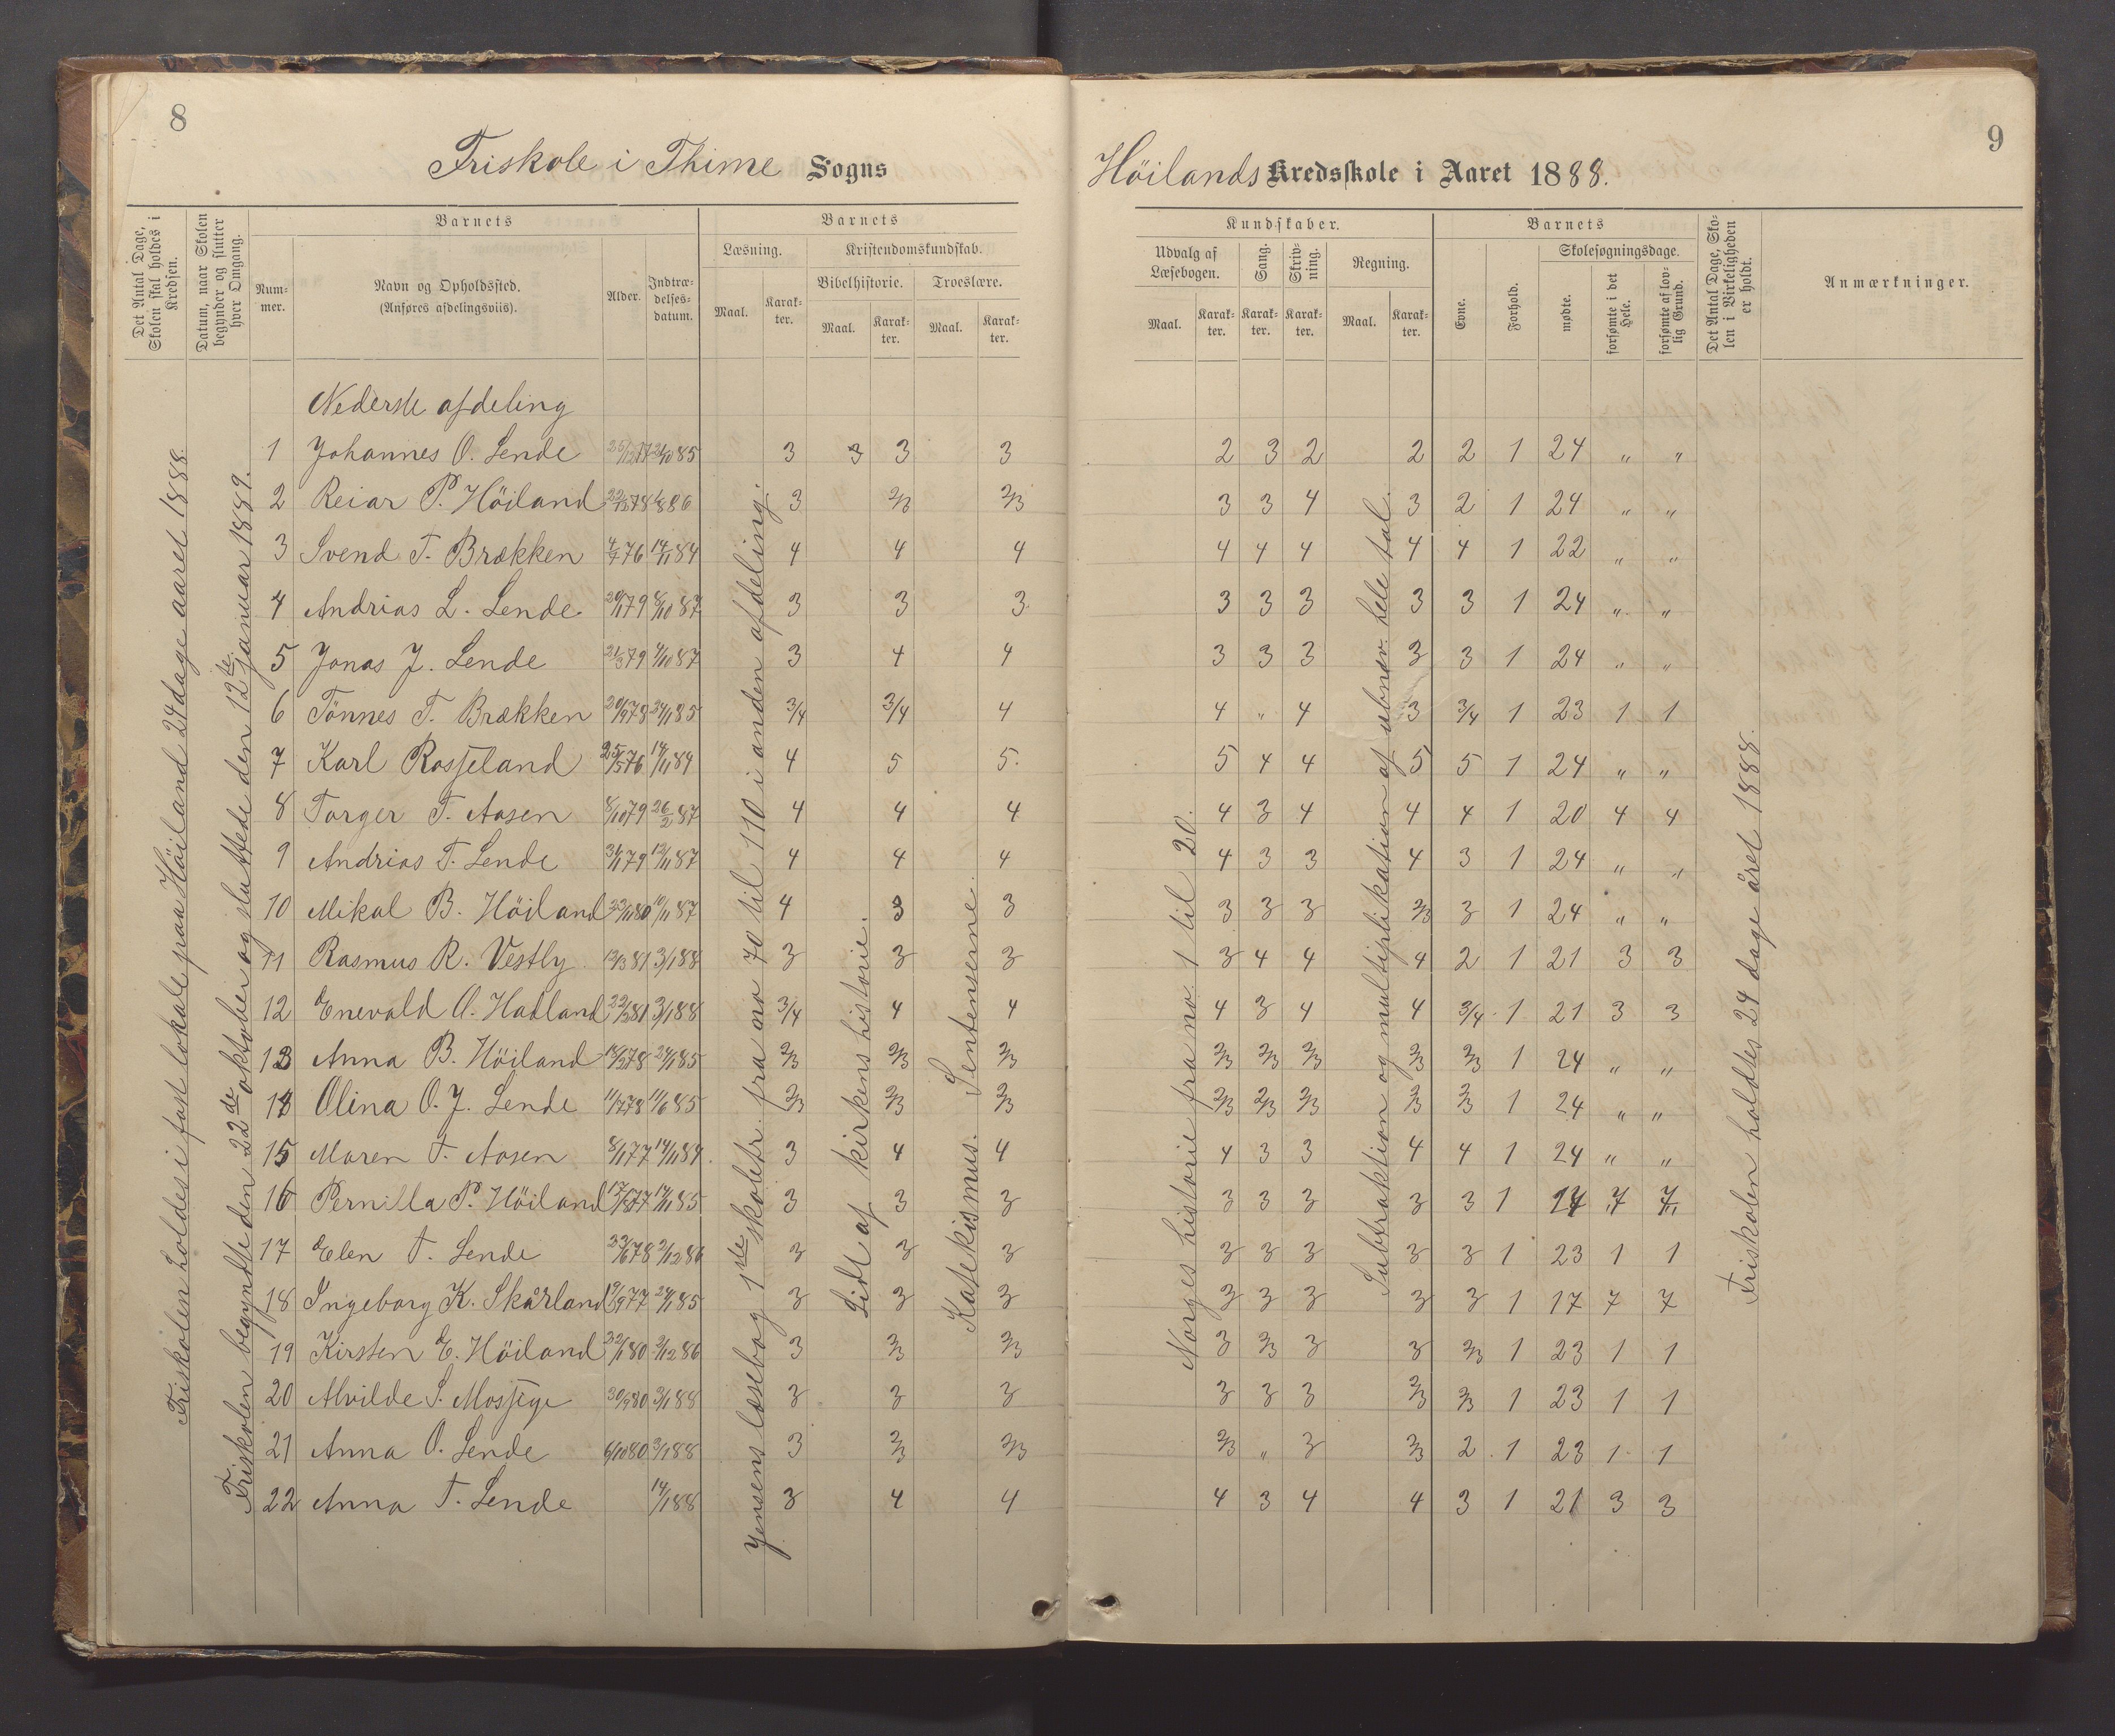 8
Friskole i Thime Sogns
Det Antal Dage, Skolen skal holdes i Kredsen.
Datum, naar Skolen begynder og slutter hver Omgang.
Barnets
Nummer.
Navn og Opholdssted.
(Anføres afdelingsviis).
Alder.
Indtrædelsesdatum.
Barnets
Læsning.
Maal.
Karakter.
Kristendomskundskab.
Bibelhistorie.
Maal.
Karakter.
Troeslære.
Maal.
Karakter.
Friskolen holdes i fast lokale paa Höiland 24 dage aaret 1888.
Friskolen begyndte den 22de oktober og sluttede den 12te januar 1889.
Jensens læsebog 1ste skoletr. fra no 70 til 110 i anden afdeling.
Lidt af kirkens historie.
Katekismus. Sentenserne.
Nederste afdeling
1 Johannes O. Lende 3 3 3 3
2 Reiar P. Höiland 3 2/3 2/3
3 Svend T. Brækken 4/7 76 14/11 84 4 4 4
4 Andrias L. Lende 3 3 3
5 Jonas J. Lende 21/3 79 3 4 4
6 Tönnes T. Brækken 3/4 3/4 4
7 Karl Rosseland 25/5 76 14/11 84 4 5 5
8 Torger T. Aasen 8/10 79 26/2 87 4 4 4
9 Andrias T. Lende 4 4 4
10 Mikal B. Höiland 4 3 3
11 Rasmus R. Vestly 3/1 88 3 3 3
12 Enevald O. Hadland 3/1 88 3/4 4 4
13 Anna B. Höiland 2/3 2/3 2/3
14 Olina O. J. Lende 2/3 2/3 2/3
15 Maren T. Aasen 8/1 77 14/11 84 3 4 4
16 Pernilla P. Höiland 3 3 3
17 Elen T. Lende 3 3 3
18 Ingeborg K. Skårland 3 3 3
19 Kirsten E. Höiland 3 2/3 2/3
20 Alvilde S. Mossige 30/9 80 3/1 88 3 3 3
21 Anna O. Lende 6/10 80 3/1 88 3 2/3 2/3
22 Anna T. Lende 14/1 88 3 4 4
9
Höilands Kredsskole i Aaret 1888.
Kundskaber.
Udvalg af Læsebogen.
Maal.
Karakter.
Sang.
Karakter.
Skrivning.
Karakter.
Regning.
Maal.
Karakter.
Barnets
Evne.
Forhold.
Skolesøgningsdage.
mødte.
forsømte i det Hele.
forsømte af lovlig Grund.
Det Antal Dage, Skolen i Virkeligheden er holdt.
Anmærkninger.
Norges historie fra no. 1 til 20.
Subtraktion og multiplikation af ubnæv. hele tal.
Friskolen holdtes 24 dage året 1888.
2 3 2 2 2 1 24 " "
3 3 4 3 2 1 24 " "
4 4 4 4 4 1 22 " "
3 3 3 3 3 1 24 " "
3 3 3 3 3 1 24 " "
4 " 4 3 3/4 1 23 1 1
5 4 4 5 5 1 24 " "
4 3 4 4 4 1 20 4 4
4 3 3 4 3 1 24 " "
3 3 3 2/3 3 1 24 " "
3 4 4 4 2 1 21 3 3
4 3 4 4 3/4 1 21 3 3
2/3 2/3 2/3 2/3 2/3 1 24 " "
2/3 2/3 2/3 2/3 2/3 1 24 " "
4 3 3 4 4 1 24 " "
3 3 3 3 3 1 17 7 7
3 3 3 3 3 1 23 1 1
3 3 3 3 3 1 17 7 7
3 2/3 3 3 2/3 1 23 1 1
3 3 3 2/3 2/3 1 23 1 1
2/3 " 3 2/3 2 1 23 1 1
4 3 4 4 3 1 21 3 3